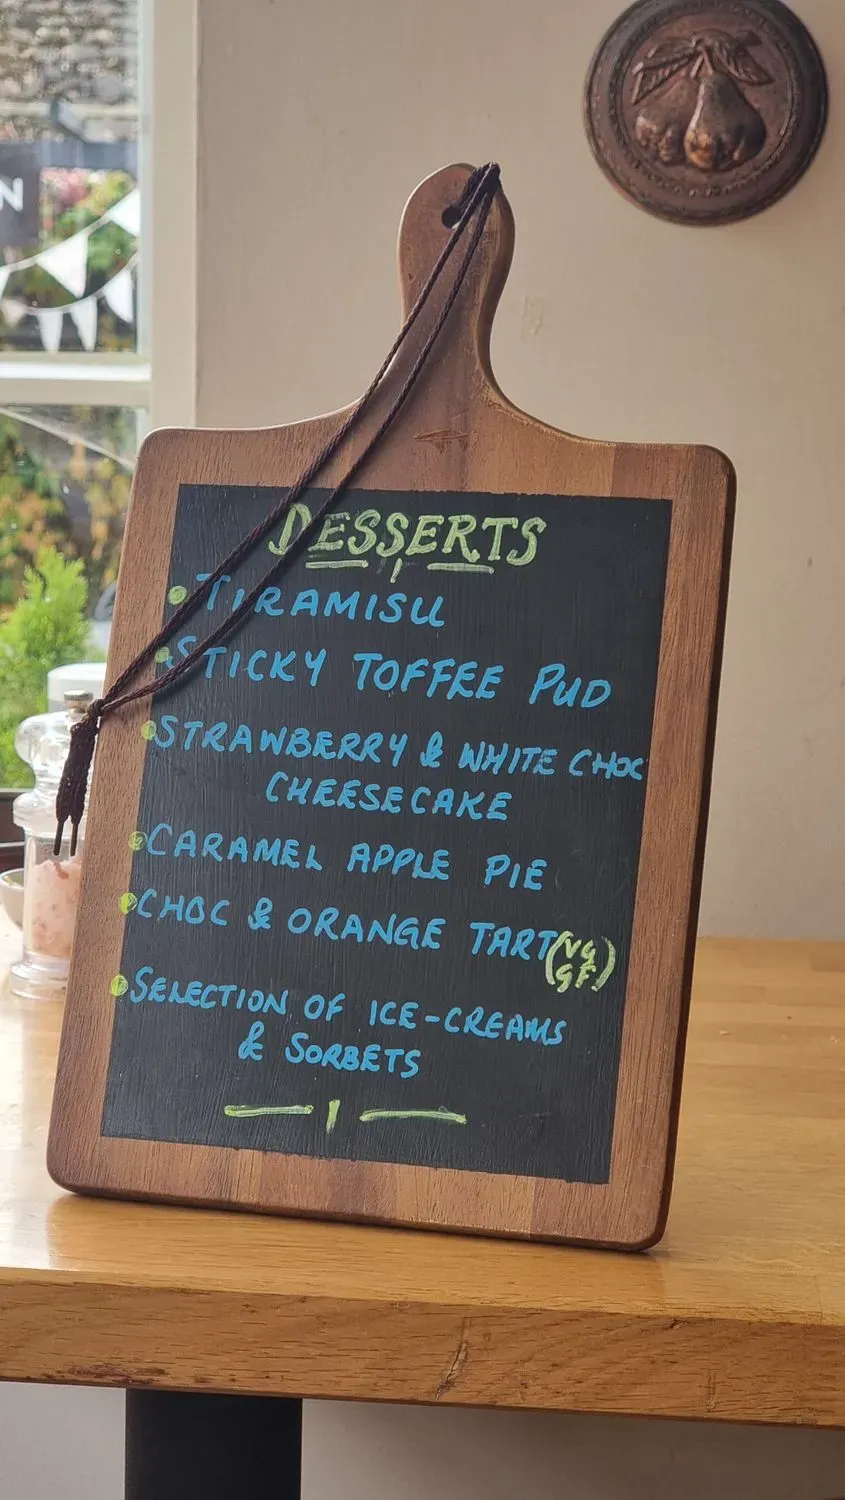 N
DESSERTS
TIRAMISU
STICKY TOFFEE PUD
STRAWBERRY & WHITE CHOC
CHEESECAKE
CARAMEL APPLE PIE
CHOC & ORANGE TART (VG
GF)
SELECTION OF ICE-CREAMS
& SORBETS